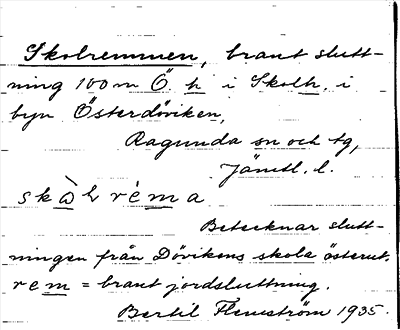 Skolremmen, brant slutt-
ning 100 m Ö. h i Skolh. i
byn Österdöviken,
Ragunda sn och tg,
Jämtl. l.
skàl réma
Betecknar slutt-
ningen från Dövikens skola österut.
rem = brant jordsluttning.
Bertil Flemström 1935.